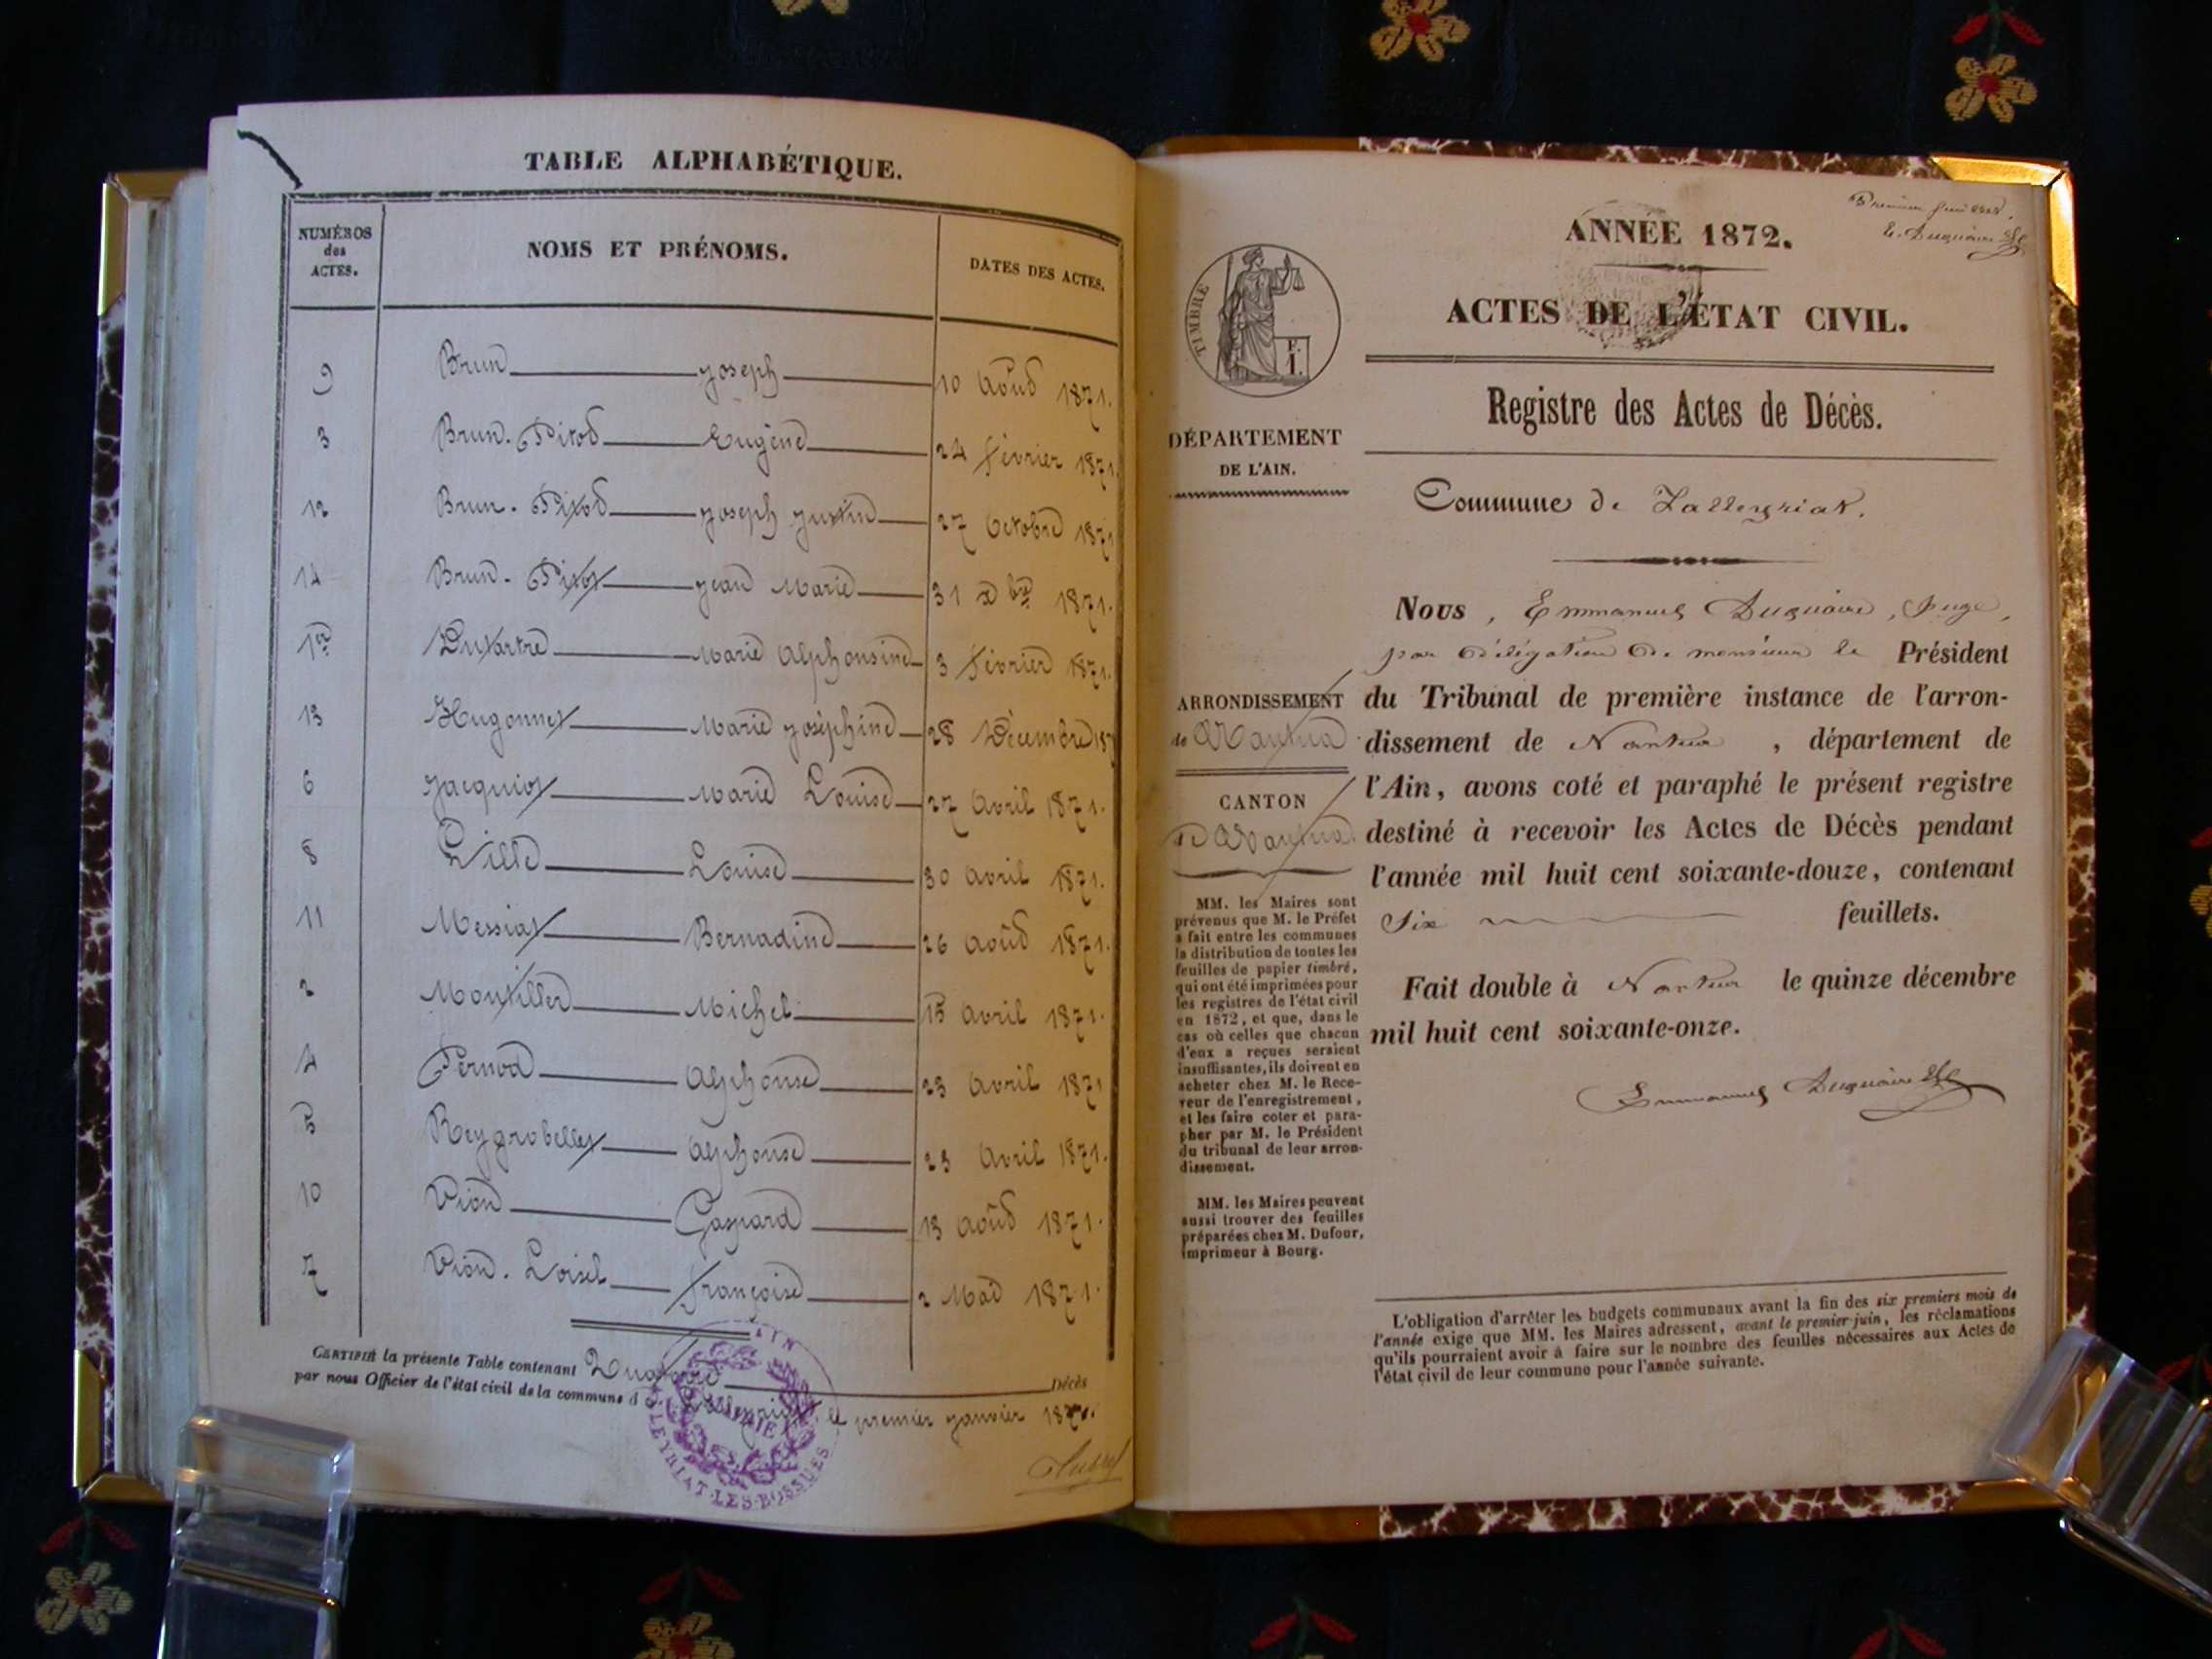 TABLE ALPHABÉTIQUE.
NUMÉROS des ACTES.
NOMS ET PRÉNOMS.
DATES DES ACTES.
9 Brun Joseph 10 Août 1871.
3 Brun-Pitod Eugène 24 février 1871
12 Brun-Pitod Joseph Justin 27 Octobre 1871
14 Brun-Pitot Jean Marie 31 Xbre 1871.
1er Dutartre Marie Alphonsine 3 février 1871.
13 Hugonnet Marie Joséphine 28 Décembre 187
6 Jacquiot Marie Louise 27 Avril 1871.
8 Lille Louise 30 avril 1871.
11 Messiat Bernadine 26 août 1871.
2 Montillet Michel 15 Avril 1871.
4 Pernod Alphonse 23 Avril 1871
5 Reygrobellet Alphonse 23 Avril 1871.
10 Vion Gaspard 13 août 1871.
7 Vion-Loisel françoise 2 Mai 1871.
CERTIFIÉ la présente Table contenant Quatorze Décès
par nous Officier de l'état civil de la commune d le premier janvier 187
AIN
MAIRIE
LALLEYRIAT-LES-BOSSUES
Premier feuillet.
E. Duquaire
ANNÉE 1872.
TIMBRE
F.
1.
ACTES DE L'ÉTAT CIVIL.
Registre des Actes de Décès.
DÉPARTEMENT
DE L'AIN.
Commune de Lalleyriat.
Nous, Emmanuel Duquaire, Juge,
par délégation de monsieur le Président
du Tribunal de première instance de l'arron-
dissement de Nantua, département de
l'Ain, avons coté et paraphé le présent registre
destiné à recevoir les Actes de Décès pendant
l'année mil huit cent soixante-douze, contenant
Six feuillets.
Fait double à Nantua le quinze décembre
mil huit cent soixante-onze.
Emmanuel Duquaire
ARRONDISSEMENT
de Nantua
CANTON
de Nantua.
MM. les Maires sont
prévenus que M. le Préfet
a fait entre les communes
la distribution de toutes les
feuilles de papier timbré,
qui ont été imprimées pour
les registres de l'état civil
en 1872, et que, dans le
cas où celles que chacun
d'eux a reçues seraient
insuffisantes, ils doivent en
acheter chez M. le Rece-
veur de l'enregistrement,
et les faire coter et para-
pher par M. le Président
du tribunal de leur arron-
dissement.
MM. les Maires peuvent
aussi trouver des feuilles
préparées chez M. Dufour,
imprimeur à Bourg.
L'obligation d'arrêter les budgets communaux avant la fin des six premiers mois de
l'année exige que MM. les Maires adressent, avant le premier juin, les réclamations
qu'ils pourraient avoir à faire sur le nombre des feuilles nécessaires aux Actes de
l'état civil de leur commune pour l'année suivante.